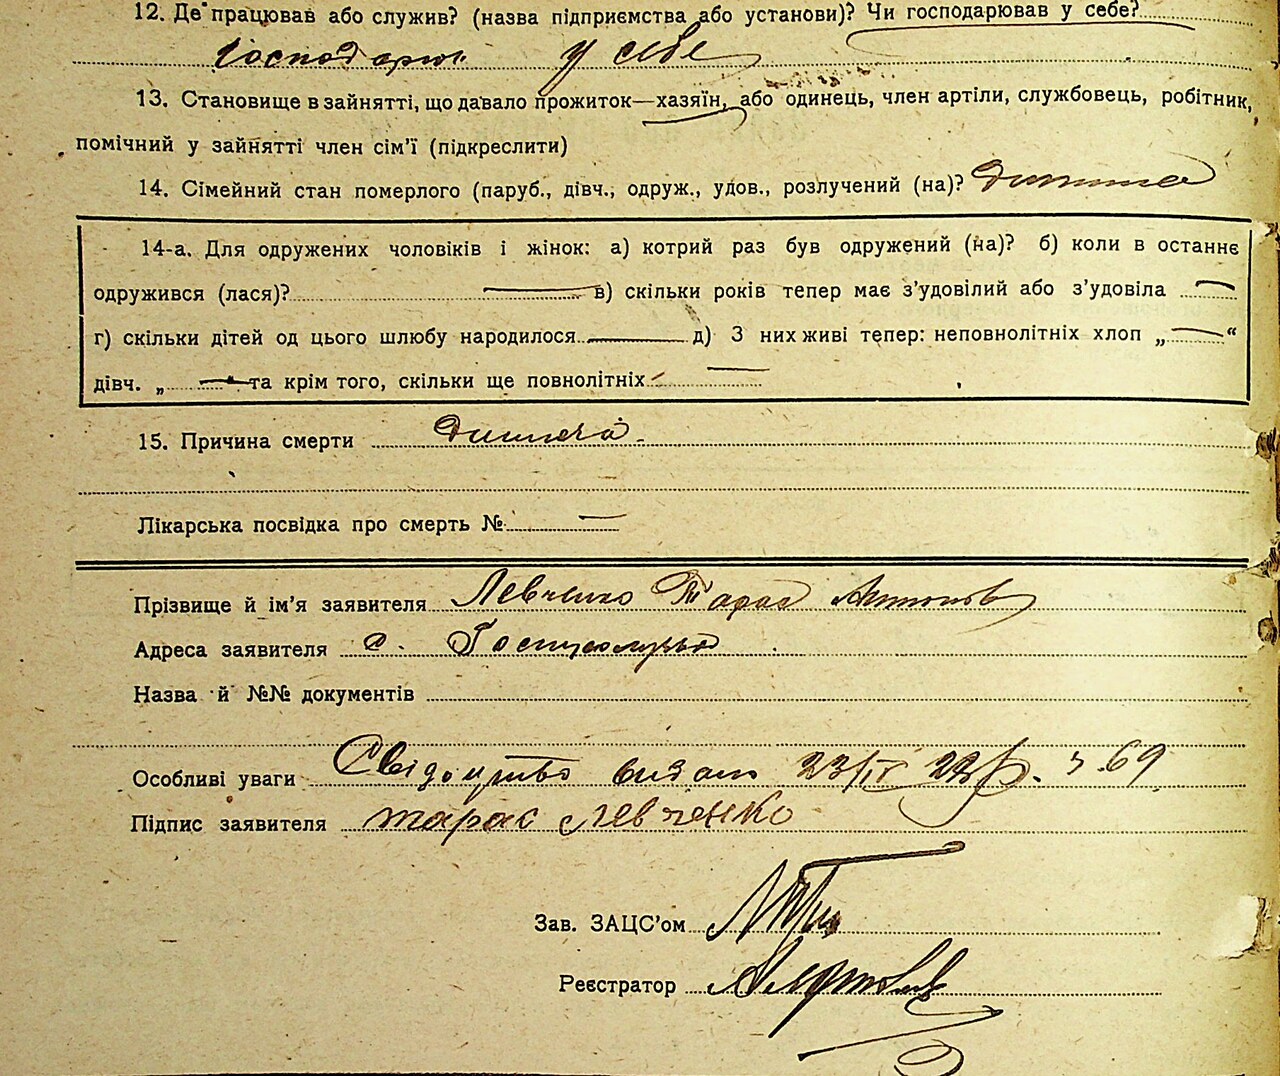 12. Де працював або служив? (назва підприємства або установи)? Чи господарював у себе?
у себе
13. Становище в зайнятті, що давало прожиток—хазяїн, або одинець, член артіли, службовець, робітник,
помічний у зайнятті член сім'ї (підкреслити)
14. Сімейний стан померлого (паруб., дівч., одруж., удов., розлучений (на)? дитина
14-а. Для одружених чоловіків і жінок: а) котрий раз був одружений (на)? б) коли в останнє
одружився (лася)? — в) скільки років тепер має з'удовілий або з'удовіла —
г) скільки дітей од цього шлюбу народилося — д) З них живі тепер: неповнолітніх хлоп „ — “
дівч. „ — та крім того, скільки ще повнолітніх —
15. Причина смерти
Лікарська посвідка про смерть № —
Прізвище й ім'я заявителя Левченко Тарас Антонов
Адреса заявителя с.
Назва й №№ документів
Особливі уваги Свідоцтво видано 23/IV 69
Підпис заявителя тарас левченко
Зав. ЗАЦС'ом
Реєстратор